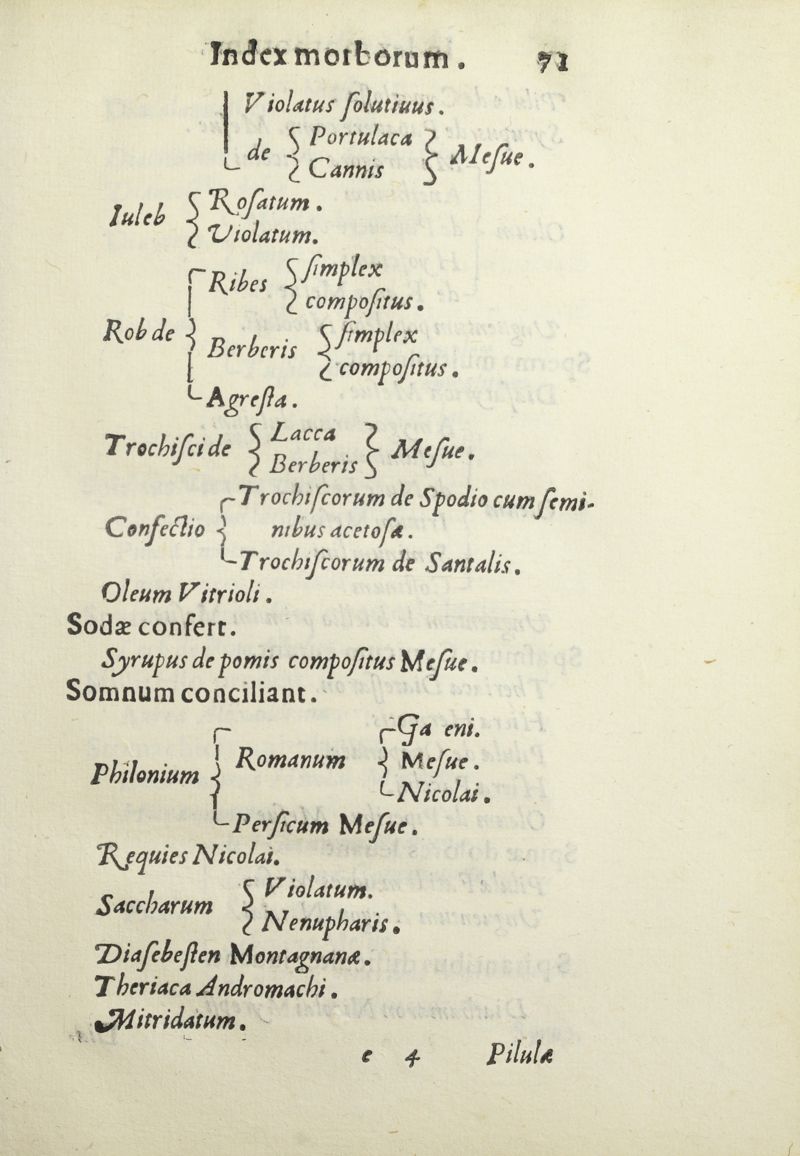 Index morborum. 71
Violatus ſolutiuus.
de { Portulaca } Meſue.
{ Cannis }
Iuleb { Roſatum.
{ Violatum.
Ribes { ſimplex
{ compoſitus.
Rob de { Berberis { ſimplex
{ compoſitus.
Agreſta.
Trochiſci de { Lacca } Meſue.
{ Berberis }
Trochiſcorum de Spodio cum ſemi-
Confectio { nibus acetoſæ.
Trochiſcorum de Santalis.
Oleum Vitrioli.
Sodæ confert.
Syrupus de pomis compoſitus Meſue.
Somnum conciliant.
Ga eni.
Philonium { Romanum { Meſue.
Nicolai.
Perſicum Meſue.
Requies Nicolai.
Saccharum { Violatum.
{ Nenupharis.
Diaſebeſten Montagnanæ.
Theriaca Andromachi.
Mitridatum.
e 4 Pilulæ